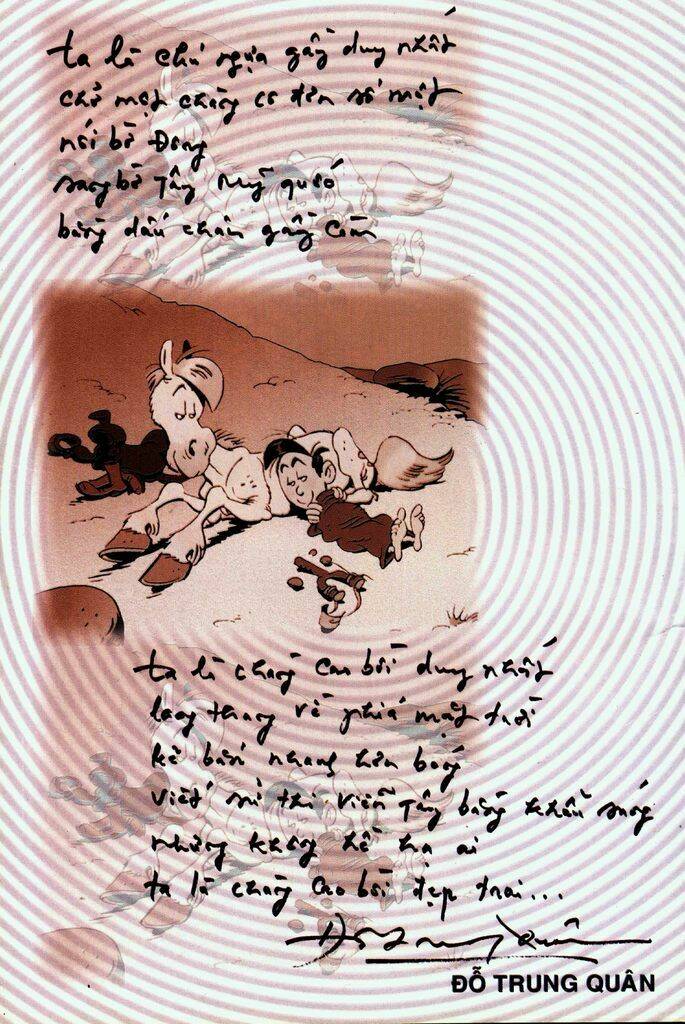 ta là chú ngựa gầy duy nhất
chở một chàng cô đơn số một
nối bờ Đông
sang bờ Tây Mỹ quốc
bằng dấu chân gầy còm
ta là chàng cao bồi duy nhất
lang thang về phía mặt trời
kẻ bắn nhanh hơn bóng
viết sử thi viễn Tây bằng khẩu súng
nhưng không hề hạ ai
ta là chàng cao bồi đẹp trai...
Đỗ Trung Quân
ĐỖ TRUNG QUÂN